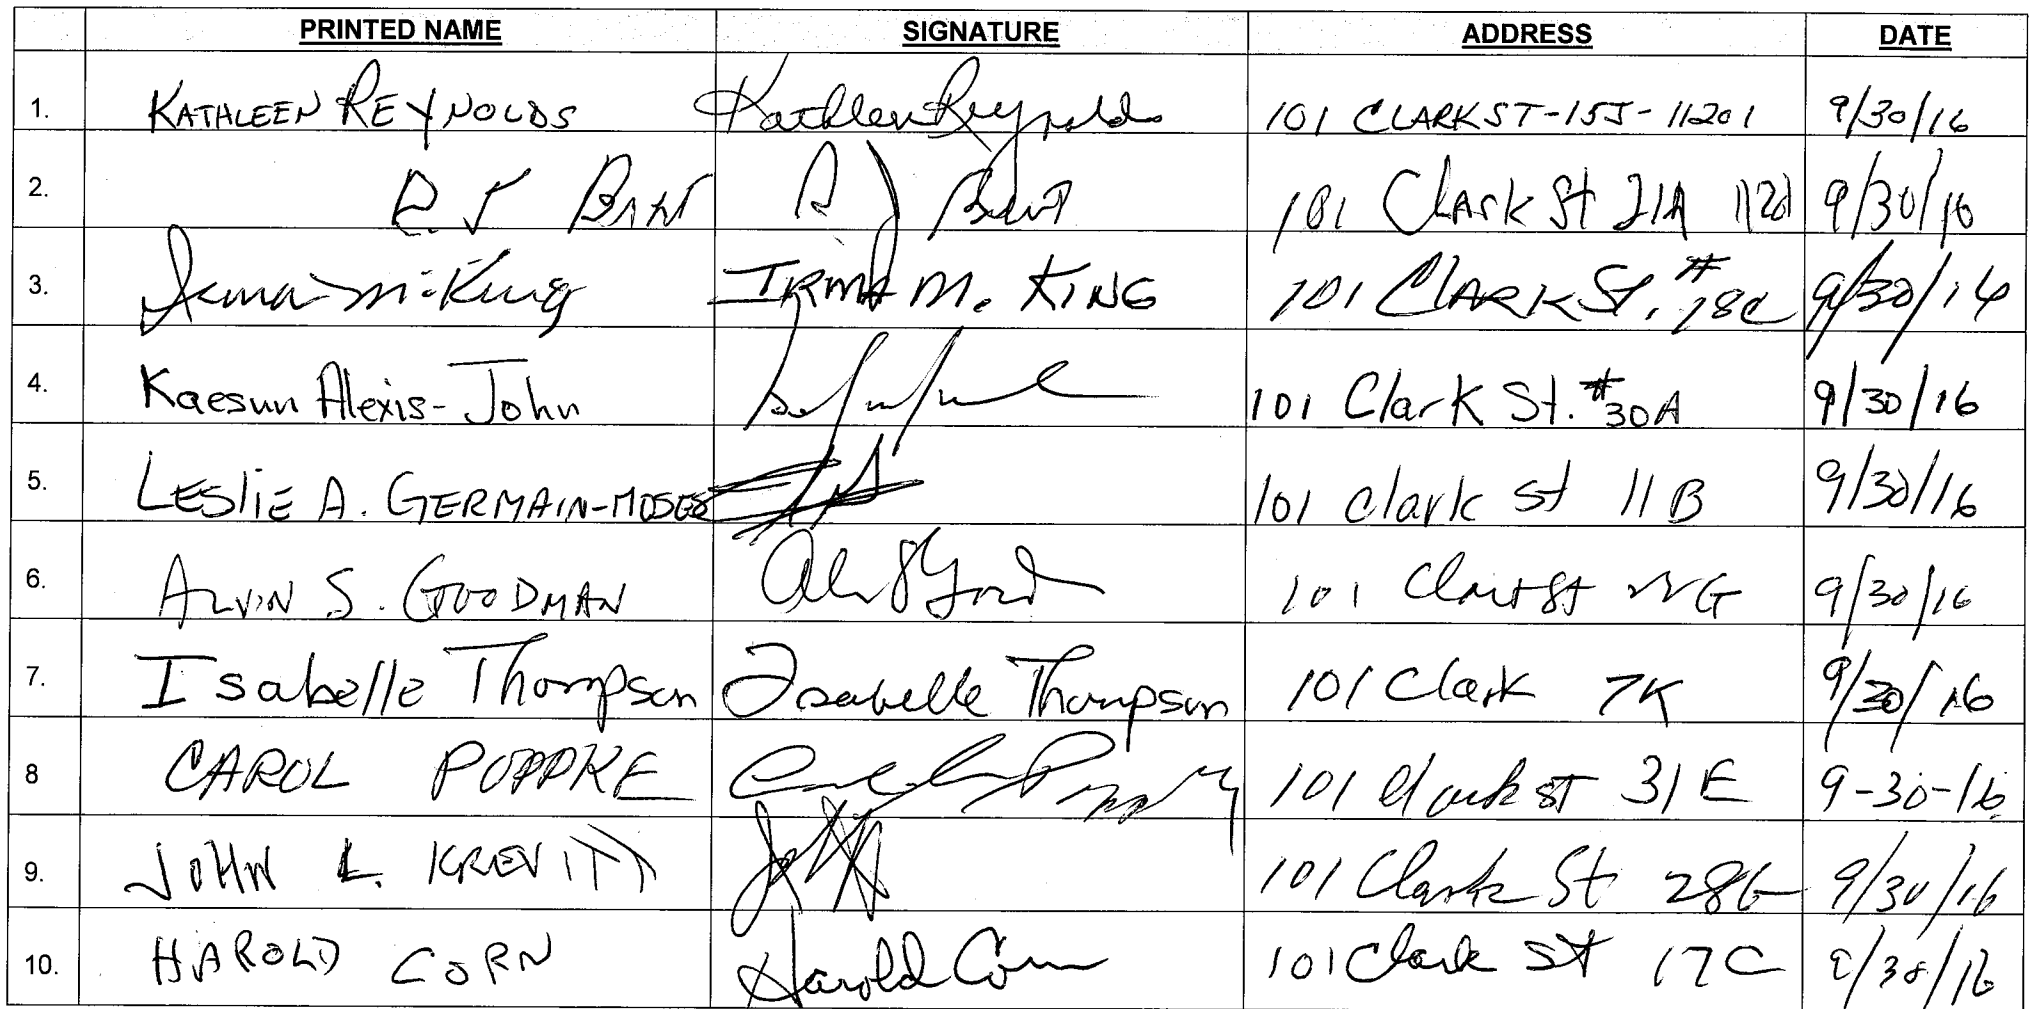 PRINTED NAME SIGNATURE ADDRESS DATE
1. KATHLEEN REYNOLDS Kathleen Reynolds 101 CLARK ST-15J-11201 9/30/16
2. R. J. R J 101 Clark St 21A 11201 9/30/16
3. Irma M. King IRMA M. KING 101 CLARK St. #18C 9/30/16
4. Kaesun Alexis-John 101 Clark St. #30A 9/30/16
5. LESLIE A. GERMAIN-MOSES 101 clark st 11B 9/30/16
6. ALVIN S. GOODMAN 101 9/30/16
7. Isabelle Thompson Isabelle Thompson 101 Clark 7K 9/30/16
8 CAROL POPPKE 101 Clark st 31E 9-30-16
9. JOHN L. KREVITT 101 Clark St 28G 9/30/16
10. HAROLD CORN Harold Corn 101 Clark St 17C 9/30/16